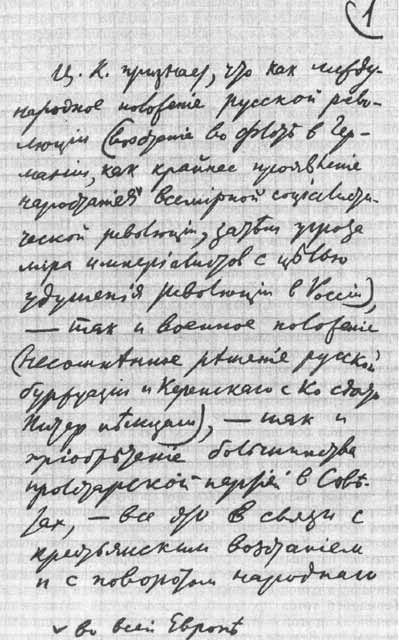 1
Ц. К. признает, что как между-
народное положение русской рево-
люции (восстание во флоте в Гер-
мании, как крайнее проявление
нарастания всемирной социалисти-
ческой революции, затем угроза
мира империалистов с целью
удушения революции в России),
— так и военное положение
(несомненное решение русской
буржуазии и Керенскаго с Ко сдать
Питер немцам), — так и
приобретение большинства
пролетарской партией в Сове-
тах, — все это в связи с
крестьянским восстанием
и с поворотом народнаго
✓ во всей Европе